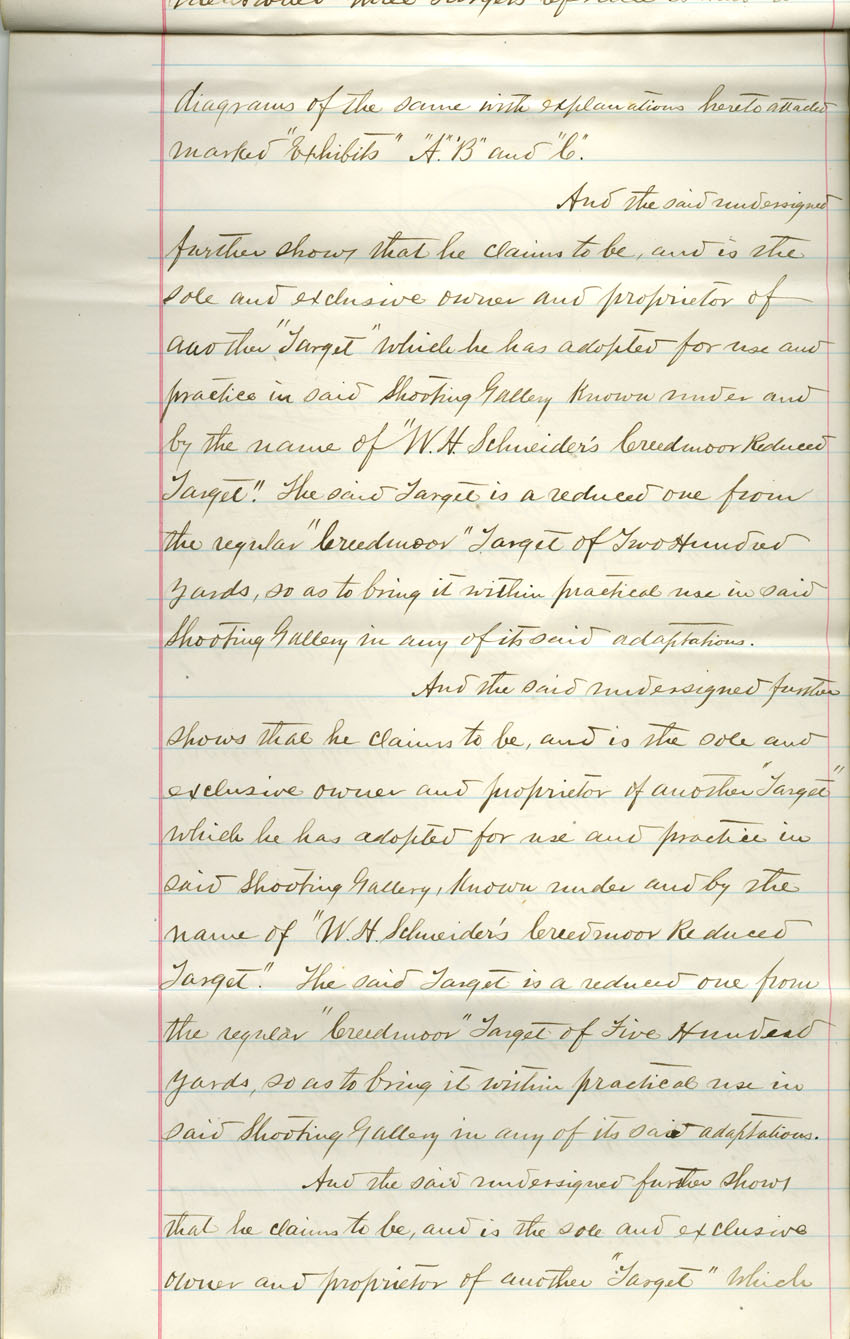 mentioned three Targets reference is had to
diagrams of the same with explanations hereto attached
marked "Exhibits" "A". "B" and "C".
And the said undersigned
further shows that he claims to be, and is the
sole and exclusive owner and proprietor of
another "Target" which he has adopted for use and
practice in said Shooting Gallery Known under and
by the name of "W. H. Schneider's Creedmoor Reduced
Target". The said Target is a reduced one from
the regular "Creedmoor" Target of Two Hundred
Yards, so as to bring it within practical use in said
Shooting Gallery in any of its said adaptations.
And the said undersigned further
shows that he claims to be, and is the sole and
exclusive owner and proprietor of another "Target"
which he has adopted for use and practice in
said Shooting Gallery, Known under and by the
name of "W. H. Schneider's Creedmoor Reduced
Target". The said Target is a reduced one from
the regular "Creedmoor" Target of Five Hundred
Yards, so as to bring it within practical use in
said Shooting Gallery in any of its said adaptations.
And the said undersigned further shows
that he claims to be, and is the sole and exclusive
owner and proprietor of another "Target" which